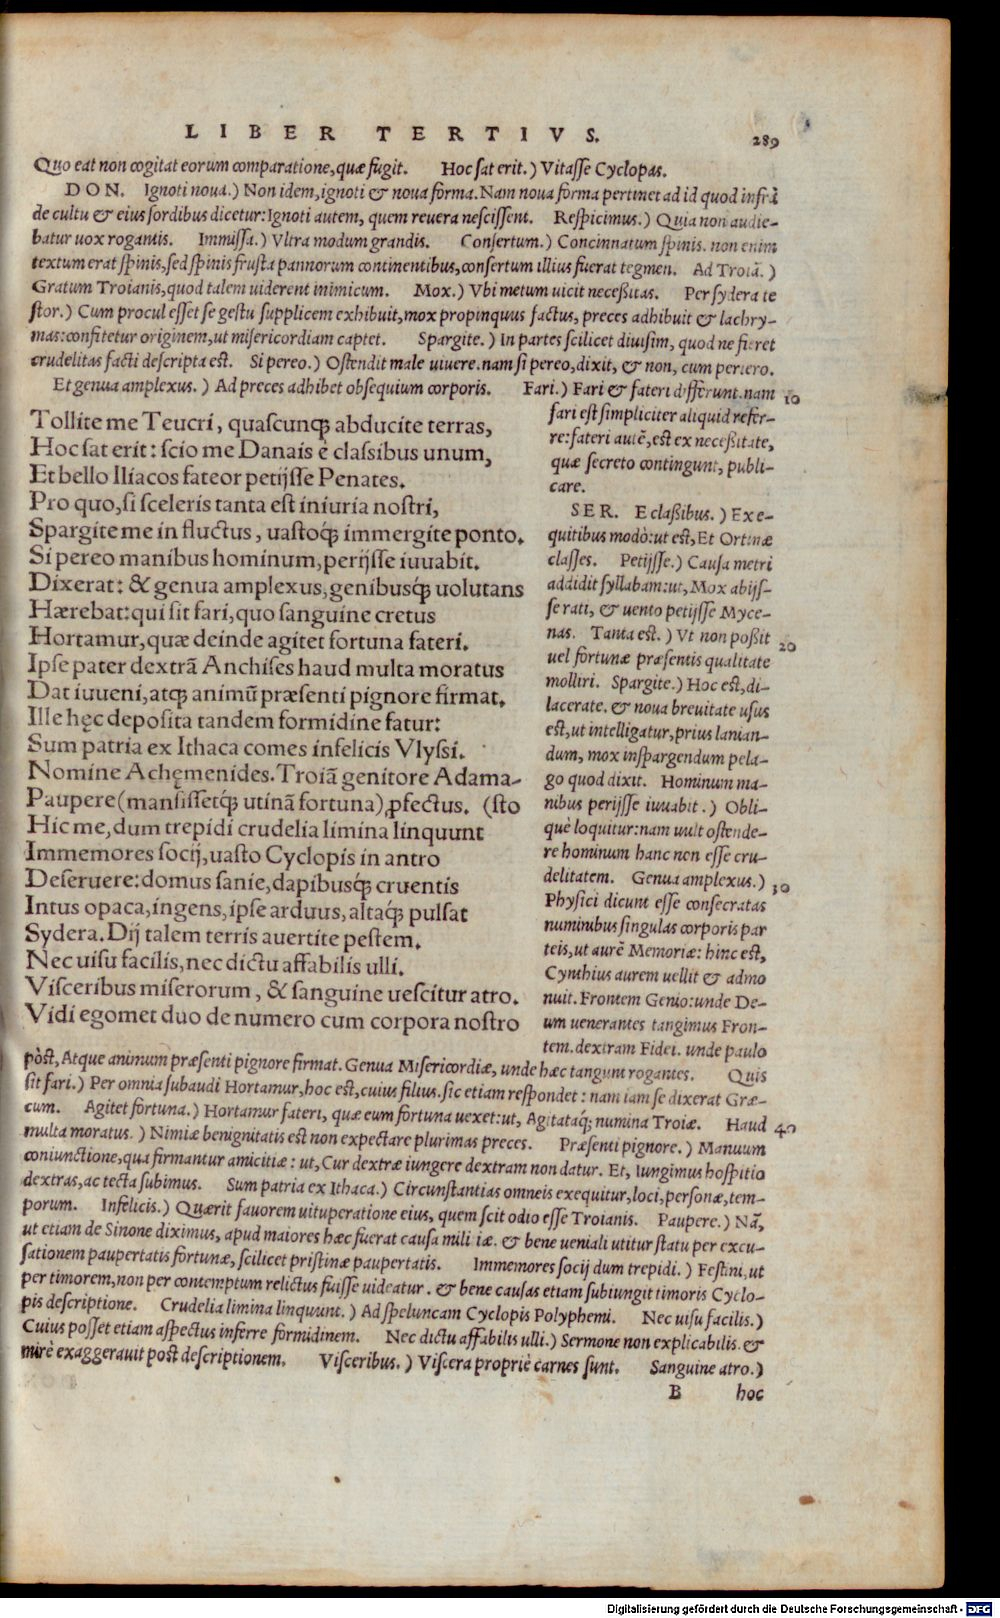 LIBER TERTIVS. 289
Quo eat non cogitat eorum comparatione, quæ fugit. Hoc sat erit.) Vitasse Cyclopas.
DON. Ignoti noua.) Non idem, ignoti & noua forma. Nam noua forma pertinet ad id quod infrà
de cultu & eius sordibus dicetur: Ignoti autem, quem reuera nescissent. Respicimus.) Quia non audie-
batur uox rogantis. Immissa.) Vltra modum grandis. Consertum.) Concinnatum spinis. non enim
textum erat spinis, sed spinis frusta pannorum continentibus, consertum illius fuerat tegmen. Ad Troiã.)
Gratum Troianis, quod talem uiderent inimicum. Mox.) Vbi metum uicit neceßitas. Per sydera te
stor.) Cum procul esset se gestu supplicem exhibuit, mox propinquus factus, preces adhibuit & lachry-
mas: confitetur originem, ut misericordiam captet. Spargite.) In partes scilicet diuisim, quod ne fieret
crudelitas facti descripta est. Si pereo.) Ostendit male uiuere. nam si pereo, dixit, & non, cum periero.
Et genua amplexus.) Ad preces adhibet obsequium corporis. Fari.) Fari & fateri differunt. nam 10
Tollite me Teucri, quascunq; abducite terras,
Hoc sat erit: scio me Danais è classibus unum,
Et bello Iliacos fateor petijsse Penates.
Pro quo, si sceleris tanta est iniuria nostri,
Spargite me in fluctus, uastoq́; immergite ponto.
Si pereo manibus hominum, perijsse iuuabit.
Dixerat: & genua amplexus, genibusq́; uolutans
Hærebat: qui sit fari, quo sanguine cretus
Hortamur, quæ deinde agitet fortuna fateri.
Ipse pater dextrã Anchises haud multa moratus
Dat iuueni, atq; animũ præsenti pignore firmat.
Ille hęc deposita tandem formidine fatur:
Sum patria ex Ithaca comes infelicis Vlyssi.
Nomine Achęmenides. Troiã genitore Adama-
Paupere (mansissetq́; utinã fortuna) ꝓfectus. (sto
Hic me, dum trepidi crudelia limina linquunt
Immemores socij, uasto Cyclopis in antro
Deseruere: domus sanie, dapibusq́; cruentis
Intus opaca, ingens, ipse arduus, altaq́; pulsat
Sydera. Dij talem terris auertite pestem.
Nec uisu facilis, nec dictu affabilis ulli.
Visceribus miserorum, & sanguine uescitur atro.
Vidi egomet duo de numero cum corpora nostro
fari est simpliciter aliquid refer-
re: fateri autẽ, est ex neceßitate,
quæ secreto contingunt, publi-
care.
SER. E claßibus.) Ex e-
quitibus modò: ut est, Et Ortinæ
classes. Petijsse.) Causa metri
addidit syllabam: ut, Mox abijs-
se rati, & uento petijsse Myce-
nas. Tanta est.) Vt non poßit 20
uel fortunæ præsentis qualitate
molliri. Spargite.) Hoc est, di-
lacerate. & noua breuitate usus
est, ut intelligatur, prius lanian-
dum, mox inspargendum pela-
go quod dixit. Hominum ma-
nibus perijsse iuuabit.) Obli-
què loquitur: nam uult ostende-
re hominum hanc non esse cru-
delitatem. Genua amplexus.) 30
Physici dicunt esse consecratas
numinibus singulas corporis par
teis, ut aurẽ Memoriæ: hinc est,
Cynthius aurem uellit & admo
nuit. Frontem Genio: unde De-
um uenerantes tangimus Fron-
tem. dextram Fidei. unde paulo
pòst, Atque animum præsenti pignore firmat. Genua Misericordiæ, unde hæc tangunt rogantes. Quis
sit fari.) Per omnia subaudi Hortamur, hoc est, cuius filius. sic etiam respondet: nam iam se dixerat Græ-
cum. Agitet fortuna.) Hortamur fateri, quæ eum fortuna uexet: ut, Agitataq́; numina Troiæ. Haud 40
multa moratus.) Nimiæ benignitatis est non expectare plurimas preces. Præsenti pignore.) Manuum
coniunctione, qua firmantur amicitiæ: ut, Cur dextræ iungere dextram non datur. Et, Iungimus hospitio
dextras, ac tecta subimus. Sum patria ex Ithaca.) Circunstantias omneis exequitur, loci, personæ, tem-
porum. Infelicis.) Quærit fauorem uituperatione eius, quem scit odio esse Troianis. Paupere.) Nã,
ut etiam de Sinone diximus, apud maiores hæc fuerat causa militiæ. & bene ueniali utitur statu per excu-
sationem paupertatis fortunæ, scilicet pristinæ paupertatis. Immemores socij dum trepidi.) Festini, ut
per timorem, non per contemptum relictus fuisse uideatur. & bene causas etiam subiungit timoris Cyclo-
pis descriptione. Crudelia limina linquunt.) Ad speluncam Cyclopis Polyphemi. Nec uisu facilis.)
Cuius posset etiam aspectus inferre formidinem. Nec dictu affabilis ulli.) Sermone non explicabilis. &
mirè exaggerauit post descriptionem. Visceribus.) Viscera propriè carnes sunt. Sanguine atro.)
B hoc
Digitalisierung gefördert durch die Deutsche Forschungsgemeinschaft - DFG